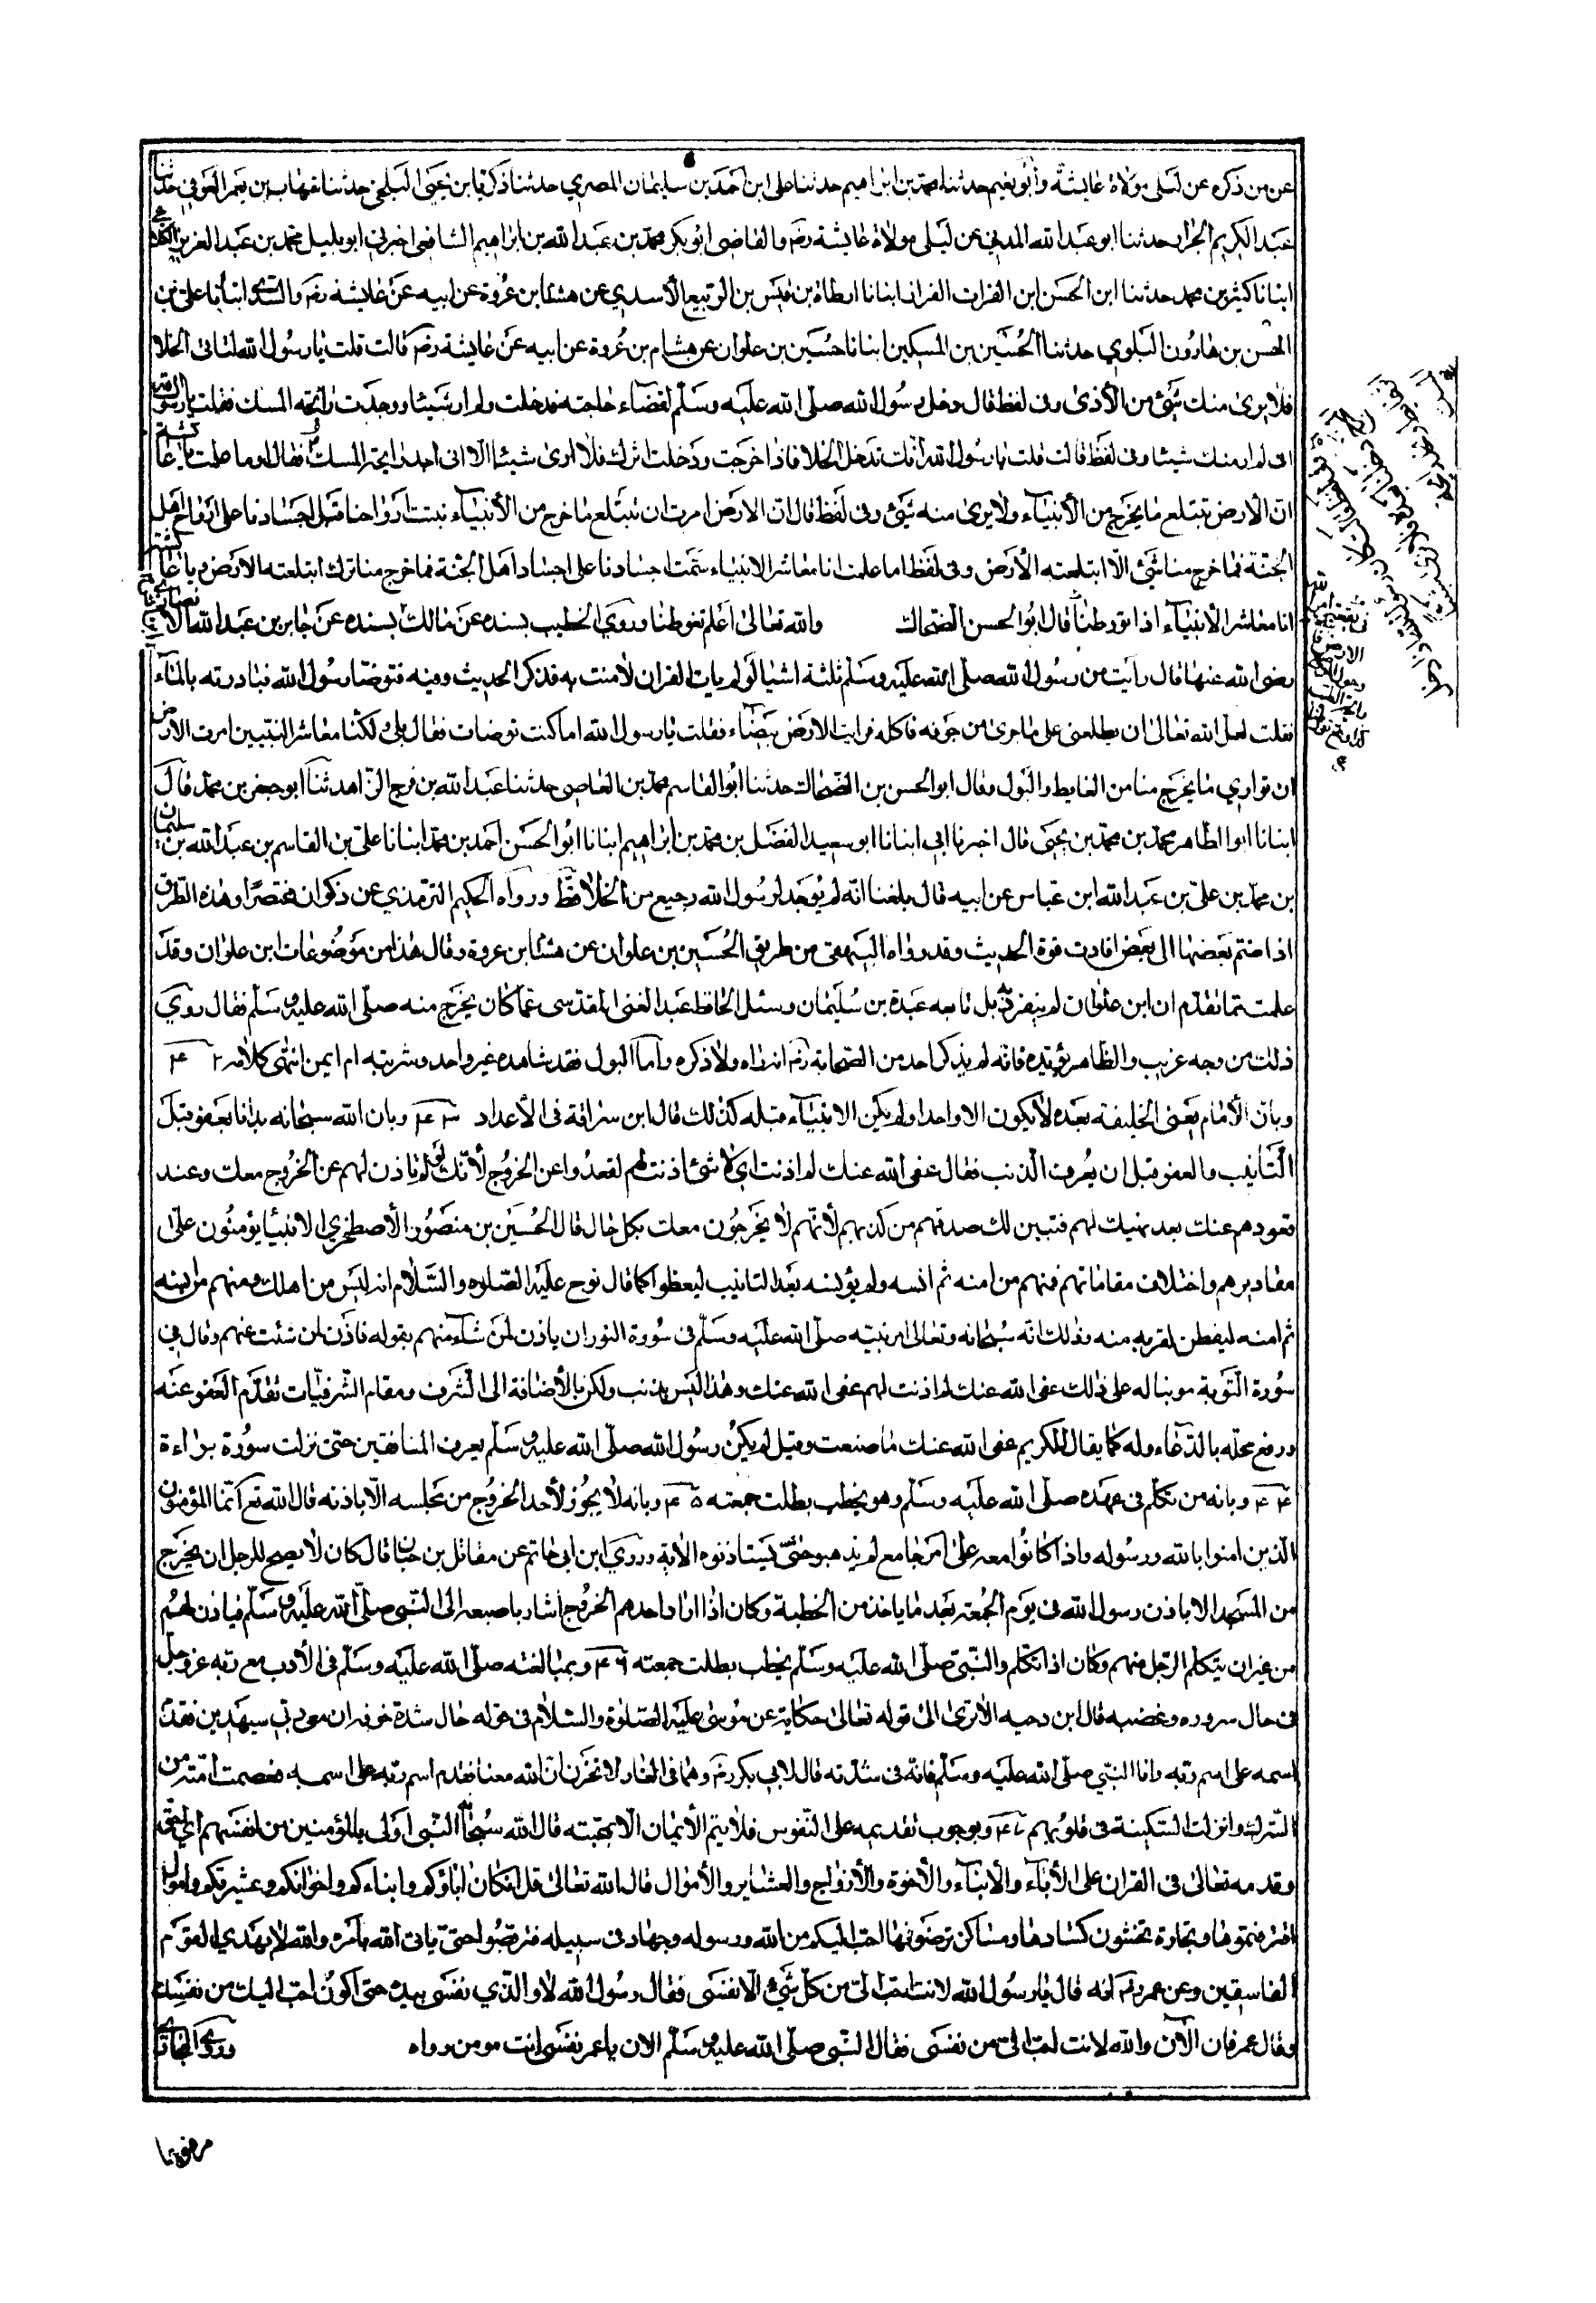 عن من ذكره عن ليلى مولاة عايشة وأبو نعيم حدثنا محمد بن ابراهيم حدثنا على ابن احمد بن سليمان المصري حدثنا ذكريا بن يحيى البلخى حدثنا شهاب بن معمر العوفي حدثنا
عبد الكريم الخزار حدثنا ابو عبد الله المدني عن ليلى مولاة عايشة رضه والقاضى ابو بكر محمد بن عبد الله بن ابراهيم الشافعى اخبرني ابو محمد بن عبد العزيز
انبانا كثير بن محمد حدثنا ابن الحسن ابن الفرات القزاز انبانا ارطاة بن قيس بن الربيع الأسدي عن هشام بن عروة عن ابيه عن عايشة رضه انبأنا على بن
الحسن بن هارون البلوي حدثنا الحسين بن المسكين انبانا حسين بن علوان عن هشام بن عروة عن ابيه عن عايشة رضه قالت قلت يا رسول الله لتاتى الخلا
فلا يرى منك شيئ من الأذى وفى لفظ قال دخل رسول الله صلى الله عليه وسلم لقضاء حاجته فدخلت ولم ار شيئا ووجدت رايحة المسك فقلت يا رسول الله
انى لم ار منك شيئا وفى لفظ قالت قلت يا رسول الله انك تدخل الخلا فاذا خرجت ودخلت اثرك فلا ارى شيئا الا انى اجد رايحة المسك فقال اوما علمت يا عايشة
ان الأرض تبتلع ما يخرج من الأنبياء ولا يرى منه شيئ وفى لفظ قال ان الارض امرت ان تبتلع ما خرج من الأنبياء نبتت ارواحنا قبل اجسادنا على ارواح اهل
الجنة فما خرج منا شيئ الا ابتلعته الأرض وفى لفظ اما علمت انا معاشر الانبياء نبتت اجسادنا على اجساد اهل الجنة فما خرج منا ترك ابتلعته الارض يا عايشة
انا معاشر الأنبياء اذا تغوطنا قال ابو الحسن الضحاك والله تعالى اعلم تغوطنا وروى الخطيب بسنده عن مالك بسنده عن جابر بن عبد الله الانصاري
رضى الله عنها قال رأيت من رسول الله صلى الله عليه وسلم ثلثة اشيا لو لم يات القران لامنت به فذكر الحديث وفيه فتوضا رسول الله فبادرته بالماء
فقلت لعل الله تعالى ان يطلعنى على ما جرى من جوفه فاكله فرايت الارض بيضاء فقلت يا رسول الله اما كنت توضات فقال بلى ولكنا معاشر النبيين امرت الارض
ان تواري ما يخرج منا من الغايط والبول وقال ابو الحسن بن الضحاك حدثنا ابو القاسم محمد بن القاصى حدثنا عبد الله بن فرج الزاهد ثنا ابو جعفر بن محمد قال
انبانا ابو الطاهر محمد بن محمد بن يحيى قال اخبرنا ابى انبانا ابو سعيد الفضل بن محمد بن ابراهيم انبانا ابو الحسن احمد بن محمد انبانا على بن القاسم بن عبد الله بن سليمان
بن محمد بن على بن عبد الله ابن عباس عن ابيه قال بلغنا انه لم يوجد لرسول الله رجيع من الخلا قط ورواه الحكيم الترمذي عن ذكوان مختصرا وهذه الطرق
اذا ضم بعضها الى بعض افادت قوة الحديث وقد رواه البيهقى من طريق الحسين بن علوان عن هشام بن عروة وقال هذا من موضوعات ابن علوان وقد
علمت مما تقدم ان ابن علوان لم ينفرد به بل تابعه عبدة بن سليمان وسئل الحافظ عبد الغنى المقدسى عما كان يخرج منه صلى الله عليه وسلم فقال روى
ذلك من وجه غريب والظاهر يؤيده فانه لم يذكر احد من الصحابة رضه انه راه ولا ذكره واما البول فقد شاهده غير واحد وشربته ام ايمن انتهى كلامه ٤٢
وبان الأمام يعنى الخليفة بعده لا يكون الا واحدا ولم يكن الانبياء قبله كذلك قال ابن سراقة فى الأعداد ٤٣ وبان الله سبحانه بدانا بعفو قبل
التأنيب والعفو قبل ان يعرف الذنب فقال عفى الله عنك لم اذنت اي لاى شئ اذنت لهم لقعدوا عن الخروج لأنك لو لم تاذن لهم عن الخروج معك وعند
قعودهم عنك بعد نهيك لهم فتبين لك صدقهم من كذبهم لأنهم لا يخرجون معك بكل حال قال الحسين بن منصور الأصطخري الانبيا يؤمنون على
مقاديرهم واختلاف مقاماتهم فمنهم من امنه ثم انسه ولو لم يؤنسه بعد التانيب ليعظوا كما قال نوح عليه الصلوة والسلام انه ليس من اهلك ومنهم من انسه
ثم امنه ليفطن لقربه منه وذلك انه سبحانه وتعالى امر نبيه صلى الله عليه وسلم فى سورة النور ان ياذن لمن شاء منهم بقوله فاذن لمن شئت منهم وقال في
سورة التوبة مونبا له على ذلك عفى الله عنك لم اذنت لهم عفى الله عنك وهذا ليس بذنب ولكن بالأضافة الى الشرف ومقام الشرفيات تقدم العفو عنه
ورفع محله بالدعاء وله كما يقال للكريم عفى الله عنك ما صنعت وقيل لم يكن رسول الله صلى الله عليه وسلم يعرف المنافقين حتى نزلت سورة براءة
٤٤ وبانه من تكلم فى عهده صلى الله عليه وسلم وهو يخطب بطلت جمعته ٤٥ وبانه لا يجوز لأحد الخروج من مجلسه الا باذنه قال الله تع انما المؤمنون
الذين امنوا بالله ورسوله واذا كانوا معه على امر جامع لم يذهبوا حتى يستاذنوه الأية وروى ابن ابى حاتم عن مقاتل بن حبان قال كان لا يصح للرجل ان يخرج
من المسجد الا باذن رسول الله فى يوم الجمعة بعد ما ياخذ من الخطبة وكان اذا اراد احدهم الخروج اشار باصبعه الى النبى صلى الله عليه وسلم فياذن لهم
من غير ان يتكلم الرجل منهم وكان اذا تكلم والنبى صلى الله عليه وسلم يخطب بطلت جمعته ٤٦ وبمبالغته صلى الله عليه وسلم فى الأدب مع ربه عز وجل
فى حال سروره وغضبه قال ابن دحيه الا ترى الى قوله تعالى حكاية عن موسى عليه الصلوة والسلام فى قوله حال شدة خوفه ان معى ربى سيهدين فقدم
اسمه على اسم ربه واما النبي صلى الله عليه وسلم فانه فى شدته قال لابي بكر رضه وهما فى الغار لا تحزن ان الله معنا فقدم اسم ربه على اسمه فعصمت امته من
الشرك وانزلت السكينة فى قلوبهم ٤٧ وبوجوب تقديمه على النفوس فلا يتم الأيمان الا بمحبته قال الله سبحانه النبى اولى بالمؤمنين من انفسهم اي احق
وقدمه تعالى فى القران على الأباء والأبناء والأخوة والأزواج والعشاير والأموال قال الله تعالى قل ان كان اباؤكم وابناءكم واخوانكم وعشيرتكم واموال
اقترفتموها وتجارة تخشون كسادها ومساكن ترضونها احب اليكم من الله ورسوله وجهاد فى سبيله فتربصوا حتى ياتى الله بامره والله لا يهدي القوم
الفاسقين وعن عمر رضه انه قال يا رسول الله لانت احب الى من كل شئ الا نفسى فقال رسول الله لا والذي نفسى بيده حتى اكون احب اليك من نفسك
وقال عمر فان الآن والله لانت احب الى من نفسى فقال النبى صلى الله عليه وسلم الان يا عمر نفسى انت مومن رواه وروى البخارى
مرفوعا